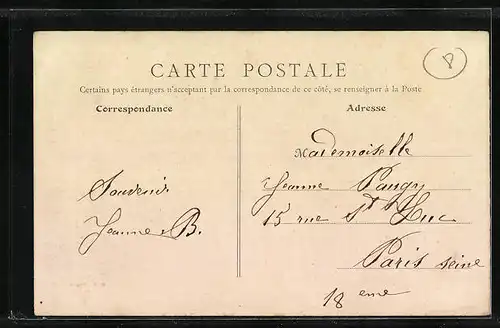 P
CARTE POSTALE
Certains pays étrangers n'acceptant par la correspondance de ce côté, se renseigner à la Poste
Correspondance
Souvenir
Jeanne B.
Adresse
Mademoiselle
Jeanne
15 rue St Luc
Paris Seine
18 eme